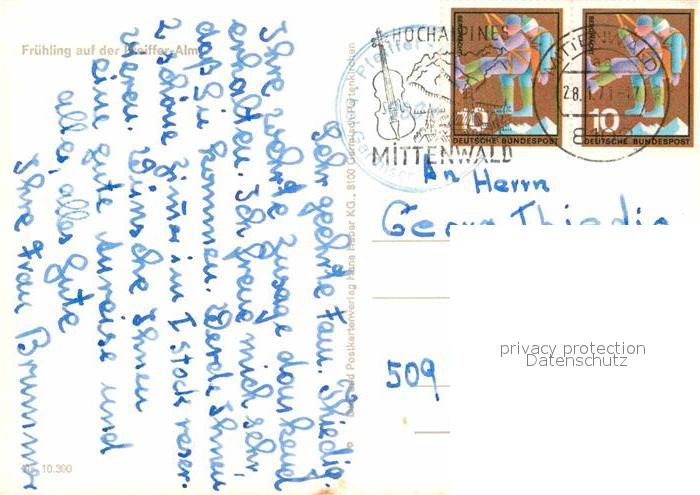 Frühling auf der Pfeiffer-Alm
Sehr geehrte Fam. Thiedig,
Ihre werte Zusage dankend
erhalten. Ich freue mich sehr,
daß Sie kommen. Werde Ihnen
2 schöne Zimmer im I stock reser-
vieren. Wünsche Ihnen
eine gute Anreise und
alles, alles Gute
Ihre Frau
Nr. 10.390
Postkartenverlag Hans Huber KG., 8100 Garmisch-Partenkirchen
HOCHALPINES
MITTENWALD
MITTENWALD
28.1.71-17
BERGWACHT
10
DEUTSCHE BUNDESPOST
BERGWACHT
10
DEUTSCHE BUNDESPOST
An Herrn
Georg Thiedig
509
privacy protection
Datenschutz